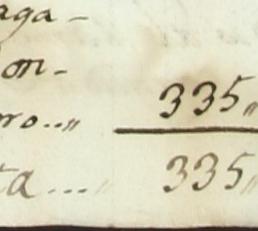 aga-
on-
ro..„ 335„
ta....„ 335„